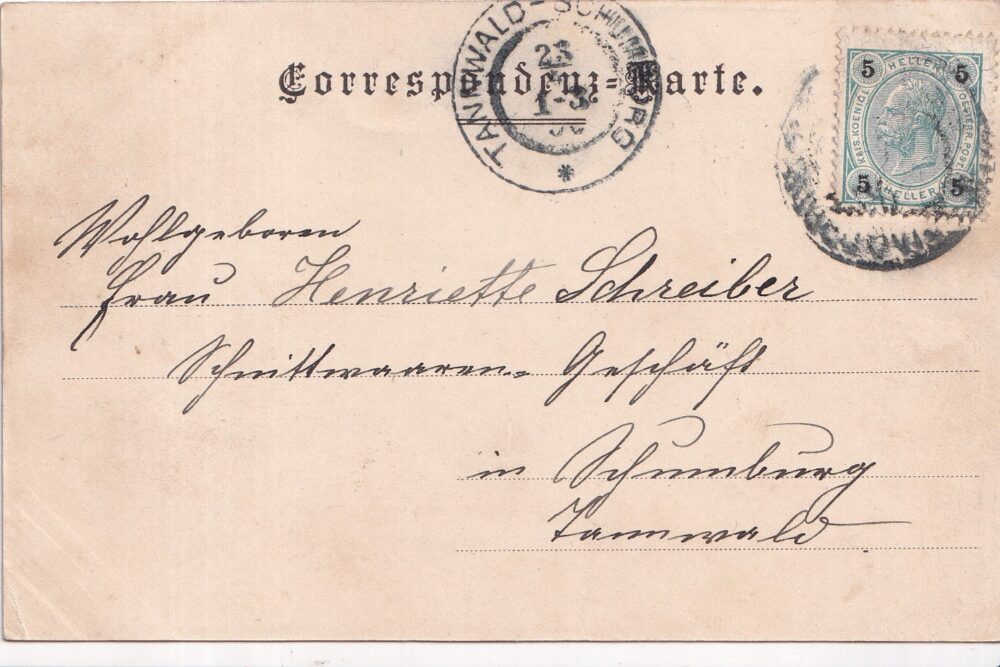 TANNWALD-SCHUMBURG
23
1-3
Correspondenz-Karte.
5 HELLER 5
KAIS. KOENIGL. OESTERR. POST
5 HELLER 5
Wohlgeboren
Frau Henriette Schreiber
Schnittwaaren-Geschäft
in Schumburg
Tannwald